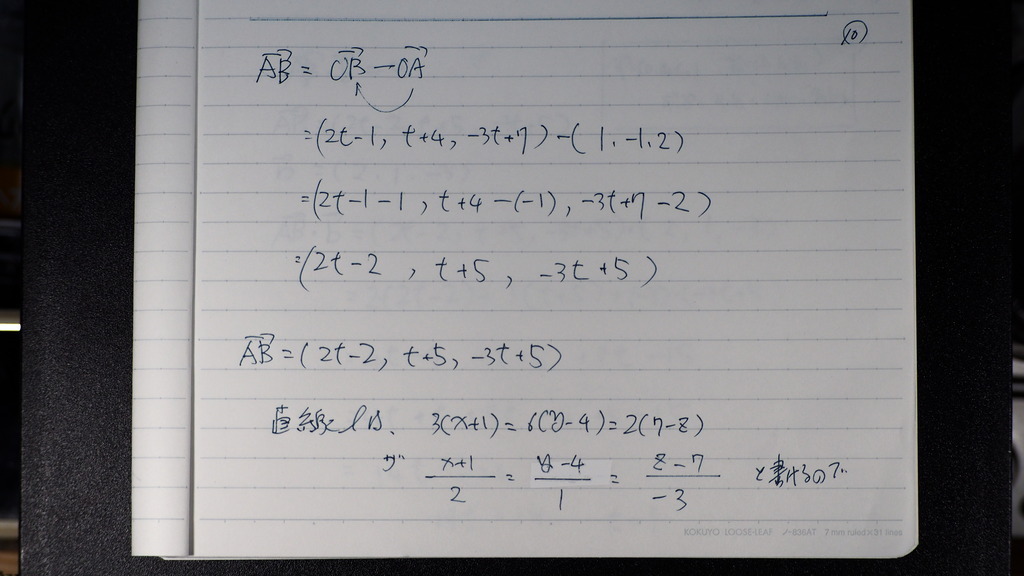 ⑩
AB→ = OB→ − OA→
=(2t-1, t+4, -3t+7)-(1, -1, 2)
=(2t-1-1, t+4-(-1), -3t+7-2)
=(2t-2, t+5, -3t+5)
AB→=(2t-2, t+5, -3t+5)
直線ℓは、 3(x+1)=6(y-4)=2(7-z)
が (x+1)/2 = (y-4)/1 = (z-7)/-3 と書けるので
KOKUYO LOOSE-LEAF ノ-836AT 7 mm ruled×31 lines